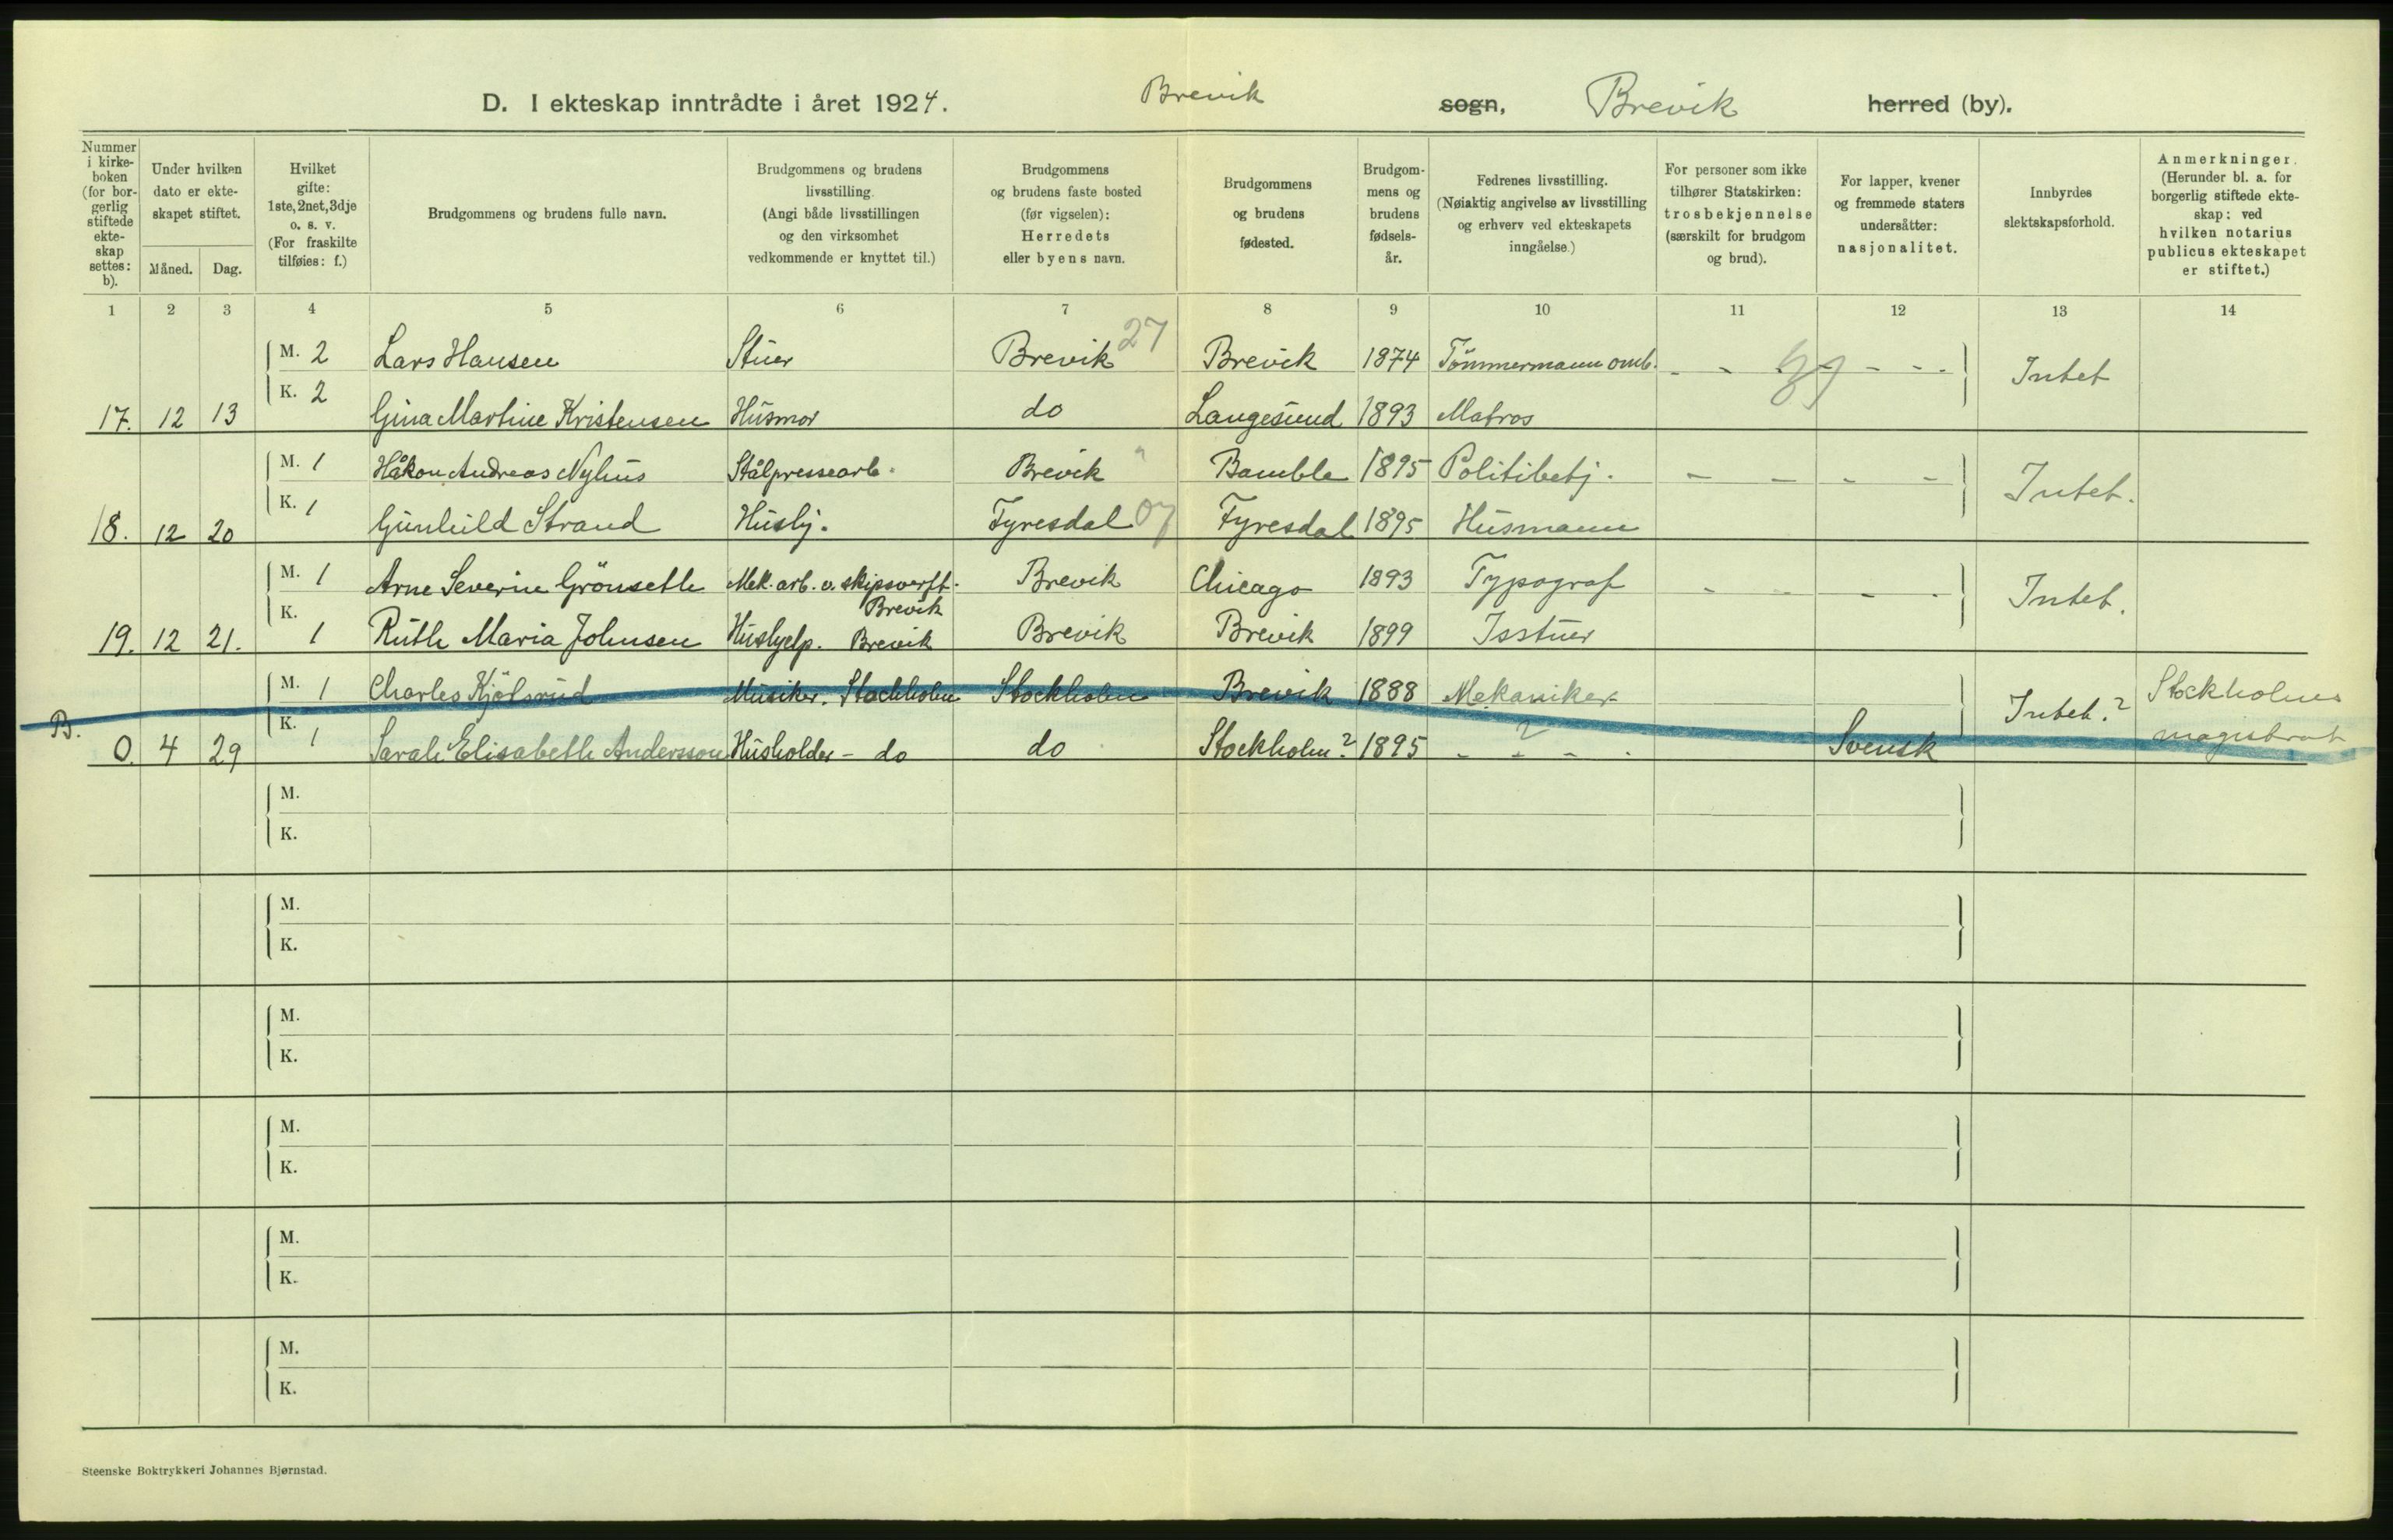 D. I ekteskap inntrådte i året 1924. Brevik sogn, Brevik herred (by).
Nummer i kirke-boken (for bor-gerlig stiftede ekte-skap settes: b).
Under hvilken dato er ekte-skapet stiftet.
Måned. Dag.
Hvilket gifte: 1ste, 2net, 3dje o. s. v. (For fraskilte tilføies: f.)
Brudgommens og brudens fulle navn.
Brudgommens og brudens livsstilling. (Angi både livsstillingen og den virksomhet vedkommende er knyttet til.)
Brudgommens og brudens faste bosted (før vigselen): Herredets eller byens navn.
Brudgommens og brudens fødested.
Brudgom-mens og brudens fødsels-år.
Fedrenes livsstilling. (Nøiaktig angivelse av livsstilling og erhverv ved ekteskapets inngåelse.)
For personer som ikke tilhører Statskirken: trosbekjennelse (særskilt for brudgom og brud).
For lapper, kvener og fremmede staters undersåtter: nasjonalitet.
Innbyrdes slektskapsforhold.
Anmerkninger. (Herunder bl. a. for borgerlig stiftede ekte-skap: ved hvilken notarius publicus ekteskapet er stiftet.)
1 2 3 4 5 6 7 8 9 10 11 12 13 14
M. 2 Lars Hansen Stuer Brevik 27 Brevik 1874 Tömmermann omb. - - - - - - Intet
17. 12 13 K. 2 Gina Martine Kristensen Husmor do Langesund 1893 Matros
M. 1 Håkon Andreas Nyhus Stålpressearb. Brevik " Bamble 1895 Politibetj. - - - - Intet.
18. 12 20 K. 1 Gunhild Strand Husbj. Fyresdal 07 Fyresdal 1895 Husmann
M. 1 Arne Severin Grönseth Mek. arb. v. skipsverft. Brevik Brevik Chicago 1893 Typograf - - - - Intet.
19. 12 21. K. 1 Ruth Maria Johnsen Hushjelp. Brevik Brevik Brevik 1899 Isstuer
M. 1 Charles Kjölsrud Musiker. Stockholm Stockholm Brevik 1888 Mekaniker Intet.? Stockholms magistrat
B. 0. 4 29 K. 1 Sarah Elisabeth Andersson Husholder - do do Stockholm? 1895 - ? - . Svensk
M.
K.
M.
K.
M.
K.
M.
K.
M.
K.
M.
K.
Steenske Boktrykkeri Johannes Bjørnstad.